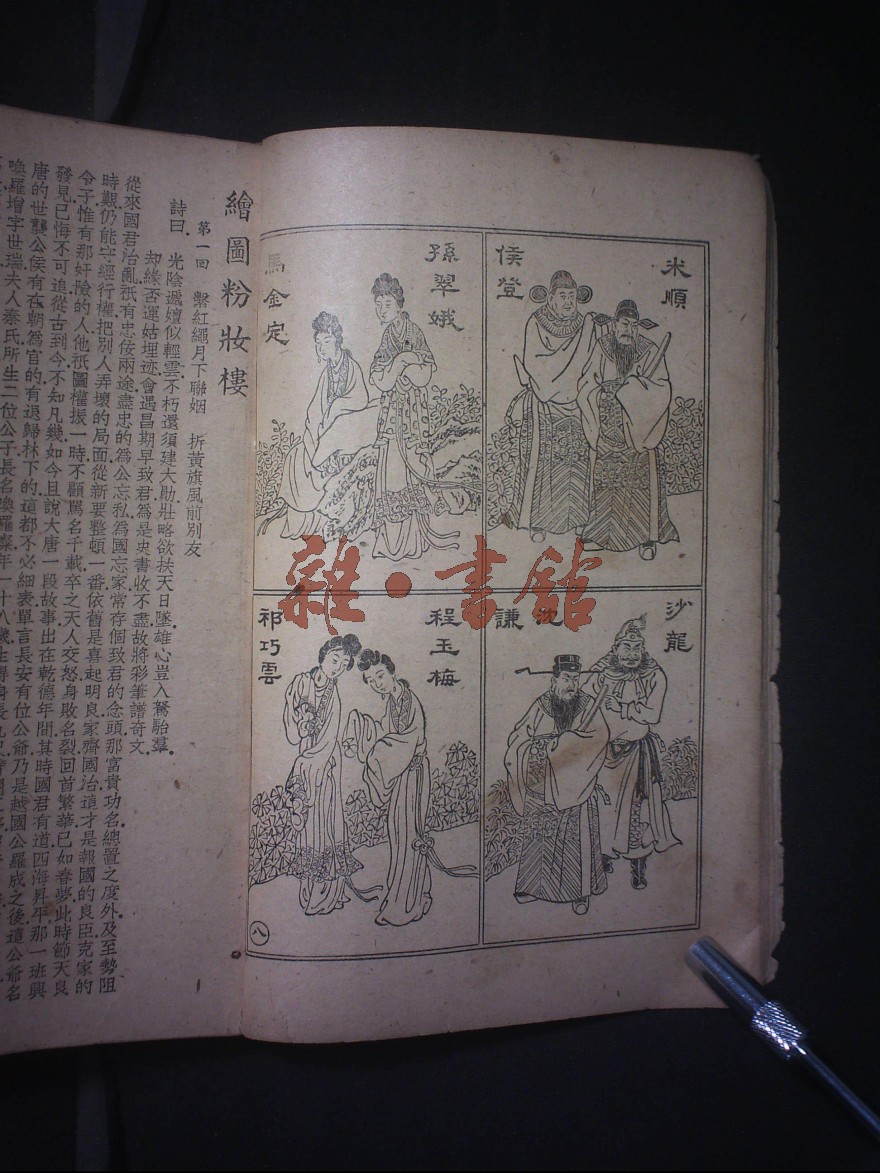 米順
侯登
孫翠娥
馬金定
沙龍
沈謙
程玉梅
祁巧雲
八
雜·書館
繪圖粉妝樓
第一回 繫紅繩月下聯姻 拆黃旗風前別友
詩曰.光陰遞嬗似輕雲.不朽還須建大勛.壯略欲扶天日墜.雄心豈入駑駘羣.
却緣否運姑埋迹.會遇昌期早致君.爲是史書收不盡.故將彩筆譜奇文.
從來國君治亂.祇有忠佞兩途.盡忠的爲公忘私.爲國忘家.常存個致君的念頭.那富貴功名.總置之度外.及至勢阻
時艱.仍能守經行權.把別人弄壞的局面.從新要整頓一番.依舊是喜起明良.家齊國治.這才是報國的良臣.克家的
令子.惟有那奸險的人.他祇圖權振一時.不顧罵名千載.卒之天人交怒.身敗名裂.回首繁華.已如春夢.此時節天良
發見.已悔不可追.從古到今.不知凡幾.如今且說大唐一段故事.出在乾德年間.其時國君有道.四海昇平.那一班興
唐的世襲公侯.有在朝爲官的.有退歸林下的.這都不必細表.單言長安有位公爺.乃是越國公羅成之後.這公爺名
喚羅增.字世瑞.夫人秦氏.所生二位公子.長名喚羅燦.年一十八歲.生得身長九尺